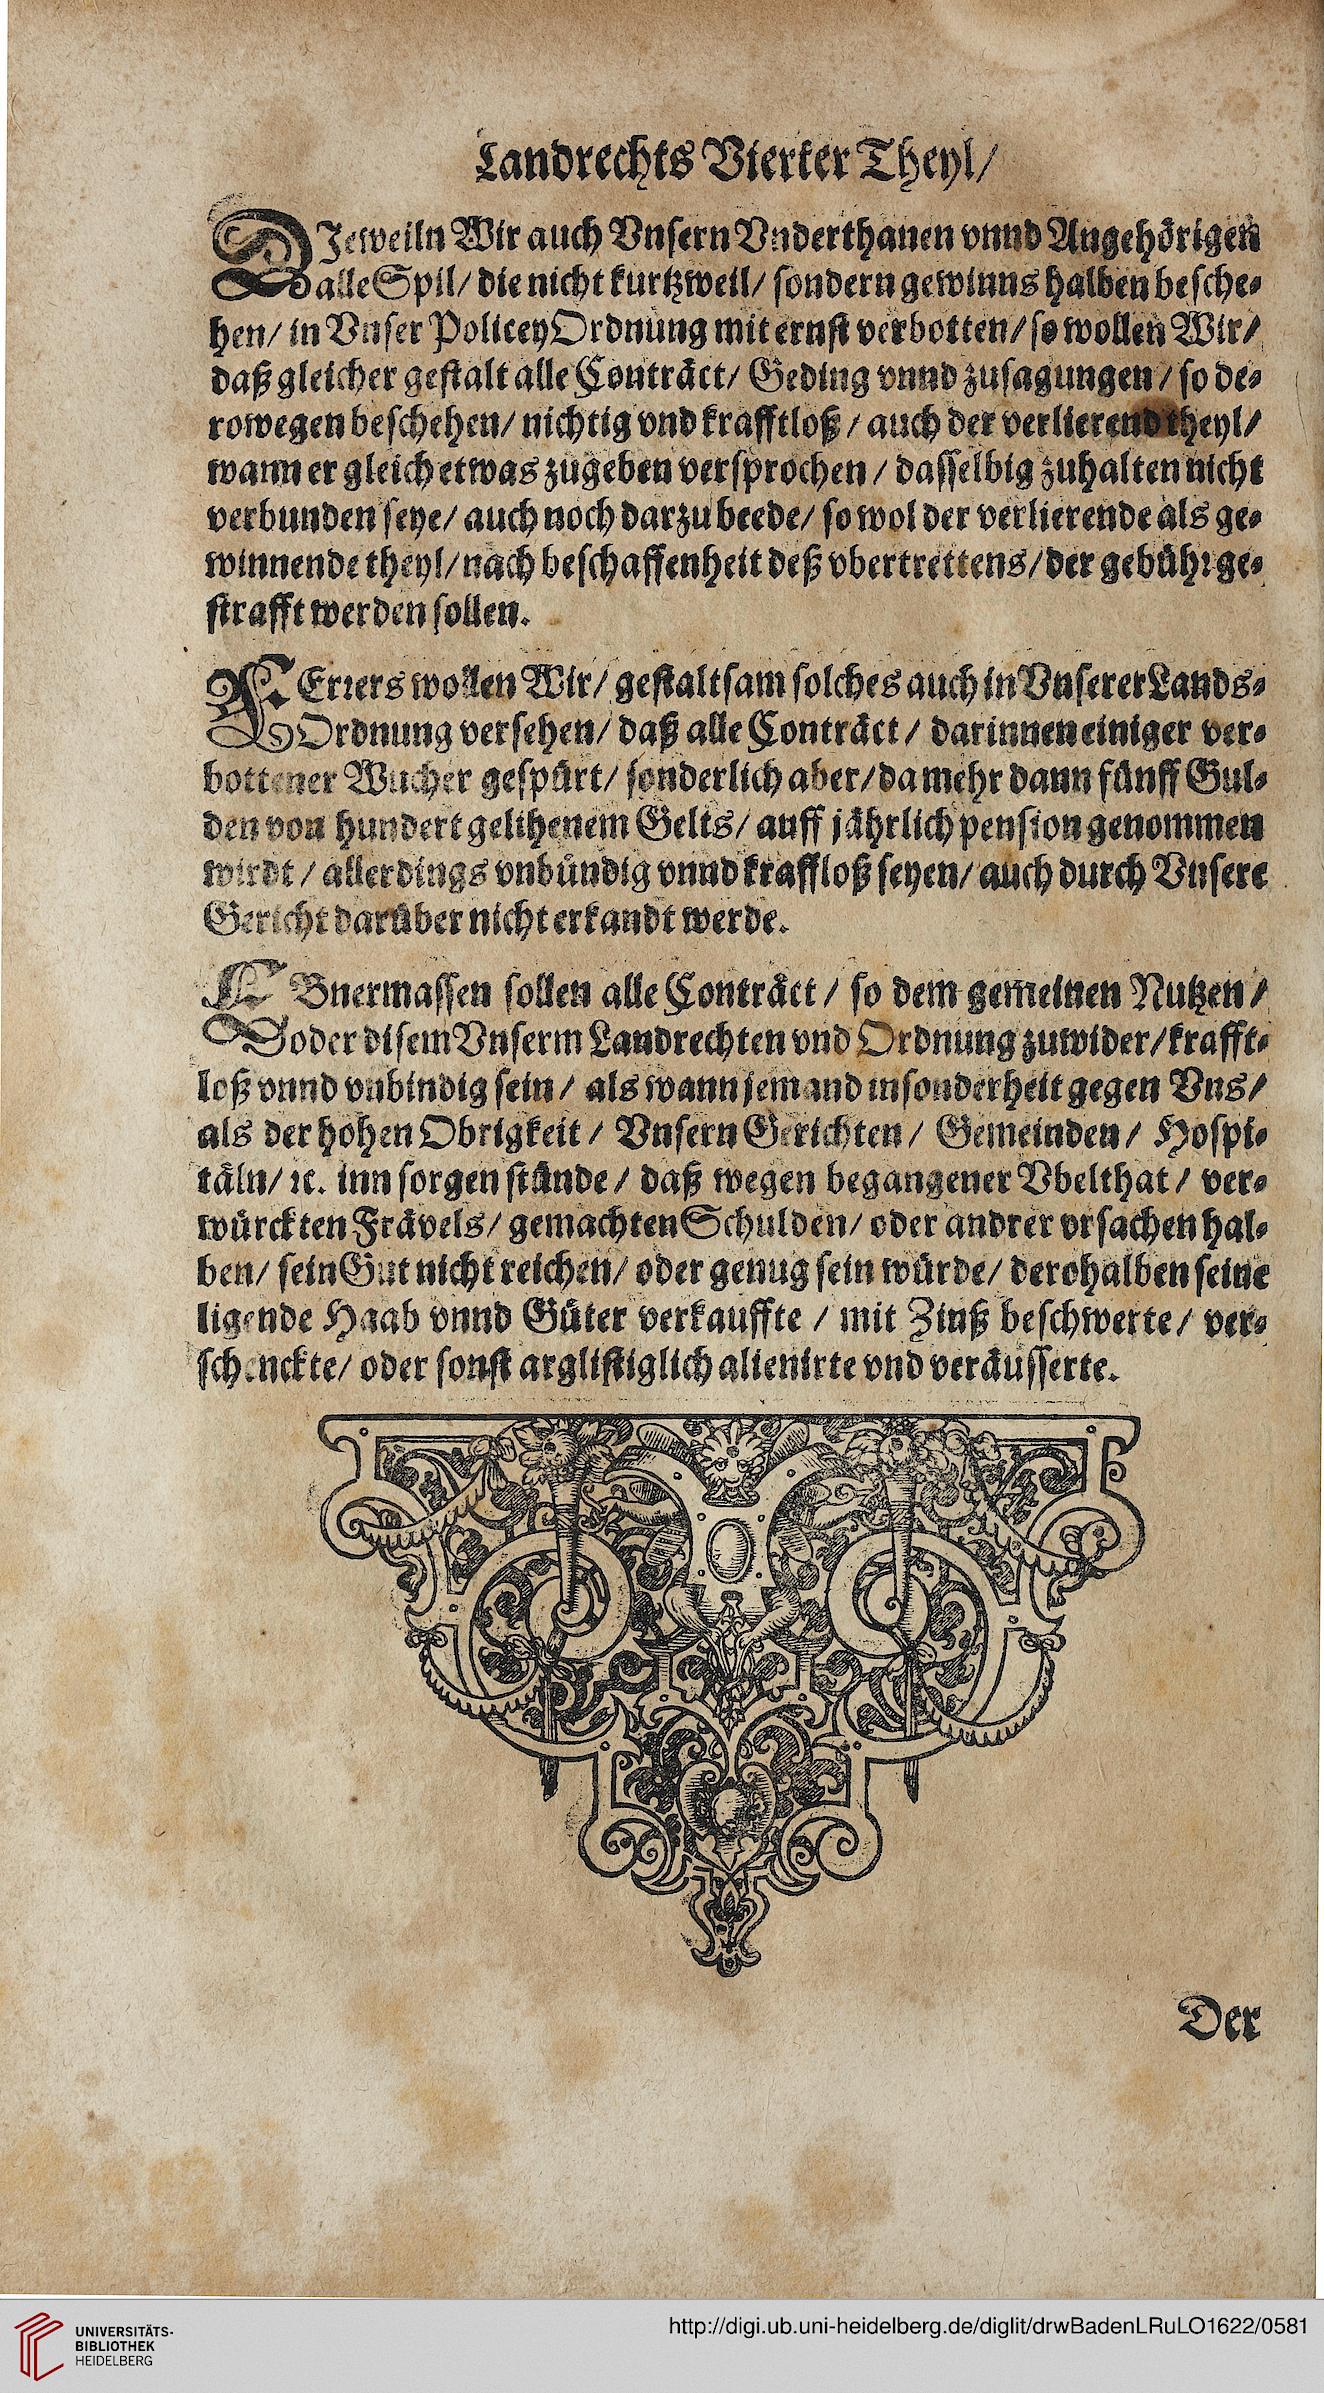 Landrechts Vierter Theyl/
DJeweiln Wir auch Vnsern Vnderthanen vnnd Angehörigen
alle Spil/ die nicht kurtzweil/ sondern gewinns halben besche⸗
hen/ in Vnser Policey Ordnung mit ernst verbotten/ so wollen Wir/
daß gleicher gestalt alle Contråct/ Geding vnnd zusagungen/ so de⸗
rowegen beschehen/ nichtig vnd krafftloß/ auch der verlierend theyl/
wann er gleich etwas zugeben versprochen/ dasselbig zuhalten nicht
verbunden seye/ auch noch darzu beede/ so wol der verlierende als ge⸗
winnende theyl/ nach beschaffenheit deß vbertrettens/ der gebühr ge⸗
strafft werden sollen.
FErrers wollen Wir/ gestaltsam solches auch in Vnserer Lands⸗
Ordnung versehen/ daß alle Contråct/ darinnen einiger ver⸗
bottener Wucher gespürt/ sonderlich aber/ da mehr dann fünff Gul⸗
den von hundert gelihenem Gelts/ auff jährlich pension genommen
wirdt/ allerdings vnbündig vnnd kraffloß seyen/ auch durch Vnsere
Gericht darüber nicht erkandt werde.
EBnermassen sollen alle Contråct/ so dem gemeinen Nutzen/
oder disem Vnserm Landrechten vnd Ordnung zuwider/ krafft⸗
loß vnnd vnbindig sein/ als wann jemand insonderheit gegen Vns/
als der hohen Obrigkeit/ Vnsern Gerichten/ Gemeinden/ Hospi⸗
tåln/ ꝛc. inn sorgen stünde/ daß wegen begangener Vbelthat/ ver⸗
würckten Frävels/ gemachten Schulden/ oder andrer vrsachen hal⸗
ben/ sein Gut nicht reichen/ oder genug sein würde/ derohalben seine
ligende Haab vnnd Güter verkauffte/ mit Zinß beschwerte/ ver⸗
schenckte/ oder sonst arglistiglich alienirte vnd veräusserte.
Der
UNIVERSITÄTS-
BIBLIOTHEK
HEIDELBERG
http://digi.ub.uni-heidelberg.de/diglit/drwBadenLRuLO1622/0581